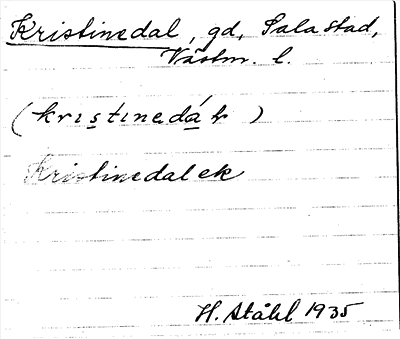 Kristinedal, gd, Sala stad,
Västm. l.
(krıstınedál)
Kristinedal ek
H. Ståhl 1935